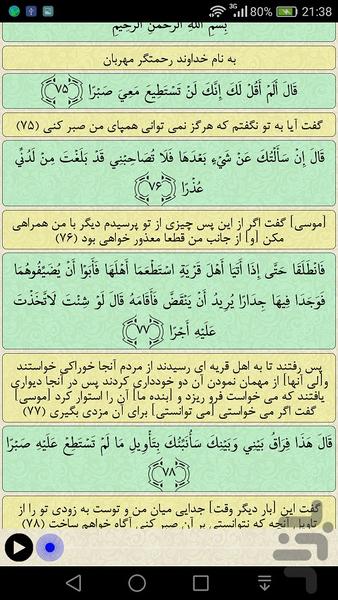 3G 80% 21:38
بِسْمِ اللَّهِ الرَّحْمَنِ الرَّحِيمِ
به نام خداوند رحمتگر مهربان
قَالَ أَلَمْ أَقُلْ لَكَ إِنَّكَ لَنْ تَسْتَطِيعَ مَعِيَ صَبْرًا ﴿۷۵﴾
گفت آیا به تو نگفتم که هرگز نمی توانی همپای من صبر کنی (۷۵)
قَالَ إِنْ سَأَلْتُكَ عَنْ شَيْءٍ بَعْدَهَا فَلَا تُصَاحِبْنِي قَدْ بَلَغْتَ مِنْ لَدُنِّي
عُذْرًا ﴿۷۶﴾
[موسی] گفت اگر از این پس چیزی از تو پرسیدم دیگر با من همراهی
مکن [و] از جانب من قطعا معذور خواهی بود (۷۶)
فَانْطَلَقَا حَتَّى إِذَا أَتَيَا أَهْلَ قَرْيَةٍ اسْتَطْعَمَا أَهْلَهَا فَأَبَوْا أَنْ يُضَيِّفُوهُمَا
فَوَجَدَا فِيهَا جِدَارًا يُرِيدُ أَنْ يَنْقَضَّ فَأَقَامَهُ قَالَ لَوْ شِئْتَ لَاتَّخَذْتَ
عَلَيْهِ أَجْرًا ﴿۷۷﴾
پس رفتند تا به اهل قریه ای رسیدند از مردم آنجا خوراکی خواستند
و[لی آنها] از مهمان نمودن آن دو خودداری کردند پس در آنجا دیواری
یافتند که می خواست فرو ریزد و [بنده ما] آن را استوار کرد [موسی]
گفت اگر می خواستی [می توانستی] برای آن مزدی بگیری (۷۷)
قَالَ هَذَا فِرَاقُ بَيْنِي وَبَيْنِكَ سَأُنَبِّئُكَ بِتَأْوِيلِ مَا لَمْ تَسْتَطِعْ عَلَيْهِ صَبْرًا
﴿۷۸﴾
گفت این [بار دیگر وقت] جدایی میان من و توست به زودی تو را از
تاویل آنچه که نتوانستی بر آن صبر کنی آگاه خواهم ساخت (۷۸)